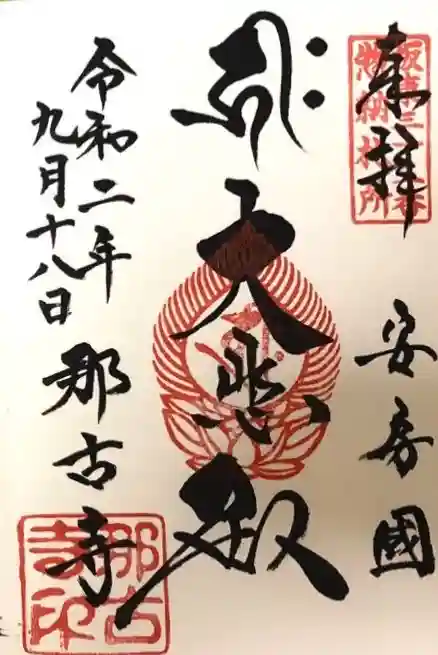 奉拝
坂東三十三番
納札所
安房國
大悲殿
令和二年
九月十八日
那古寺
那古
寺印